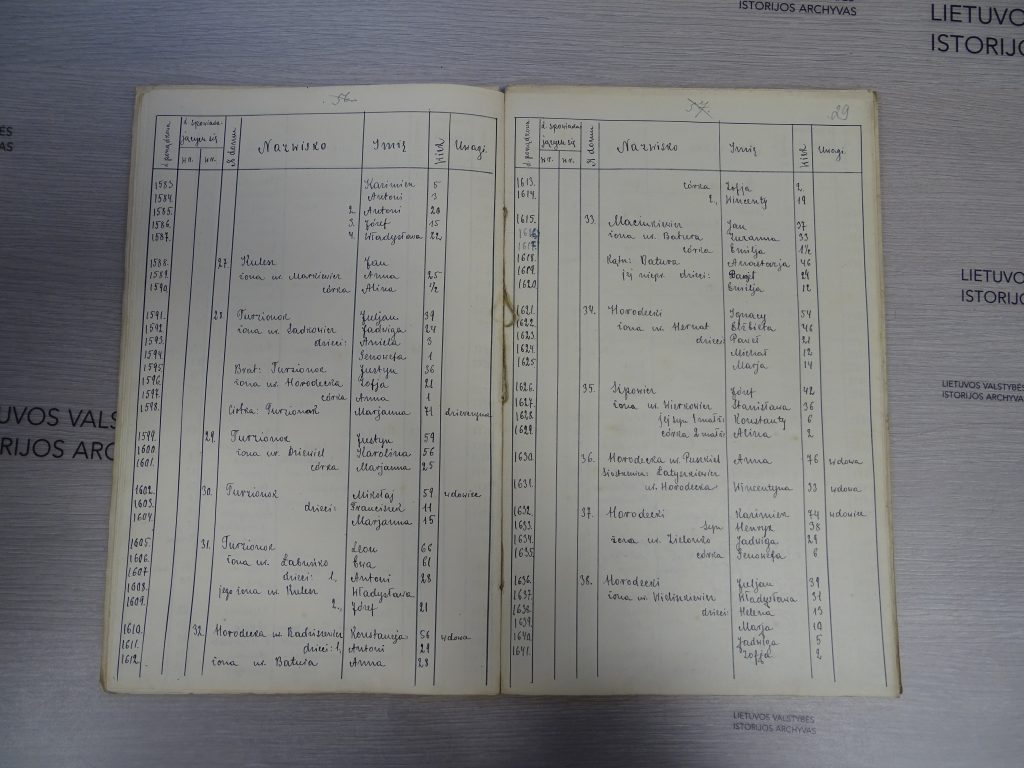 ISTORIJOS ARCHYVAS
LIETUVO
ISTORIJO
LIETUVOS VALSTYBĖS
ISTORIJOS ARCHYVAS
LIETUVOS VALSTYBĖS
ISTORIJOS ARCHYVAS
TUVOS VALS
TORIJOS ARC
LIETUVOS VALSTYBĖS
ISTORIJOS ARCHYVAS
YBĖS
HYVAS
56
L. porządkowa L. spowiada jących się № domu Nazwisko Imię Wiek Uwagi
m. k.
1583 Kazimierz 5
1584. Antoni 3
1585. 2. Antoni 20
1586. 3. Józef 15
1587. 4. Władysława 22
1588. 27. Kulesz Jan
1589. żona ur. Markiewicz Anna 25
1590 córka Alina 1/2
1591. 28. Turzionok Juljan 39
1592. żona ur. Sadkowicz Jadwiga 24
1593. dzieci: Aniela 3
1594. Genowefa 1
1595. Brat: Turzionok Justyn 36
1596. żona ur. Horodecka Zofja 21
1597. córka Anna 1
1598. Ciotka: Turzionok Marjanna 71 dziewczyna
1599. 29. Turzionok Justyn 59
1600. żona ur. Karolina 56
1601. córka Marjanna 25
1602. 30. Turzionok Mikołaj 59 wdowiec
1603. dzieci: Franciszek 11
1604. Marjanna 15
1605. 31. Turzionok Leon 66
1606. żona ur. Łabuńko Ewa 61
1607 dzieci: 1. Antoni 28
1608. jego żona ur. Kulesz Władysława
1609. 2., Józef 21
1610. 32. Horodecka ur. Konstancja 56 wdowa
1611. dzieci: 1. Antoni 29
1612. żona ur. Batura Anna 28
57 29
L. porządkowa L. spowiada jących się № domu Nazwisko Imię Wiek Uwagi
m. k.
1613. córka Zofja 2.
1614. 2., Wincenty 19
1615. 33. Maciukiewicz Jan 37
1616 żona ur. Batura Zuzanna 33
1617. córka Emilja 1½
1618. Kątn: Batura Anastazja 46
1619. jej niepr. dzieci: 24
1620. Emilja 12
1621. 34. Horodecki Ignacy 54
1622. żona ur. Hernat Elżbieta 46
1623. dzieci: Paweł 21
1624. Michał 12
1625. Marja 14
1626. 35. Józef 42
1627. żona ur. Wierkowicz Stanisława 36
1628. jej syn 1 małż: Konstanty 6
1629. córka 2 małż: Alina 2
1630. 36. Horodecka ur. Puszkiel Anna 76 wdowa
Łatyszkiewicz
1631. ur. Horodecka Wincentyna 33 wdowa
1632. 37. Horodecki Kazimierz 74 wdowiec
1633. syn Henryk 38
1634. żona ur. Zielonko Jadwiga 29
1635. córka Genowefa 6
1636. 38. Horodecki Juljan 39
1637. żona ur. Wieliczkiewicz Władysława 31
1638. dzieci: Helena 13
1639. Marja 10
1640. Jadwiga 5
1641. Zofja 2
LIETUVOS VALSTYBĖS
ISTORIJOS ARCHYVAS